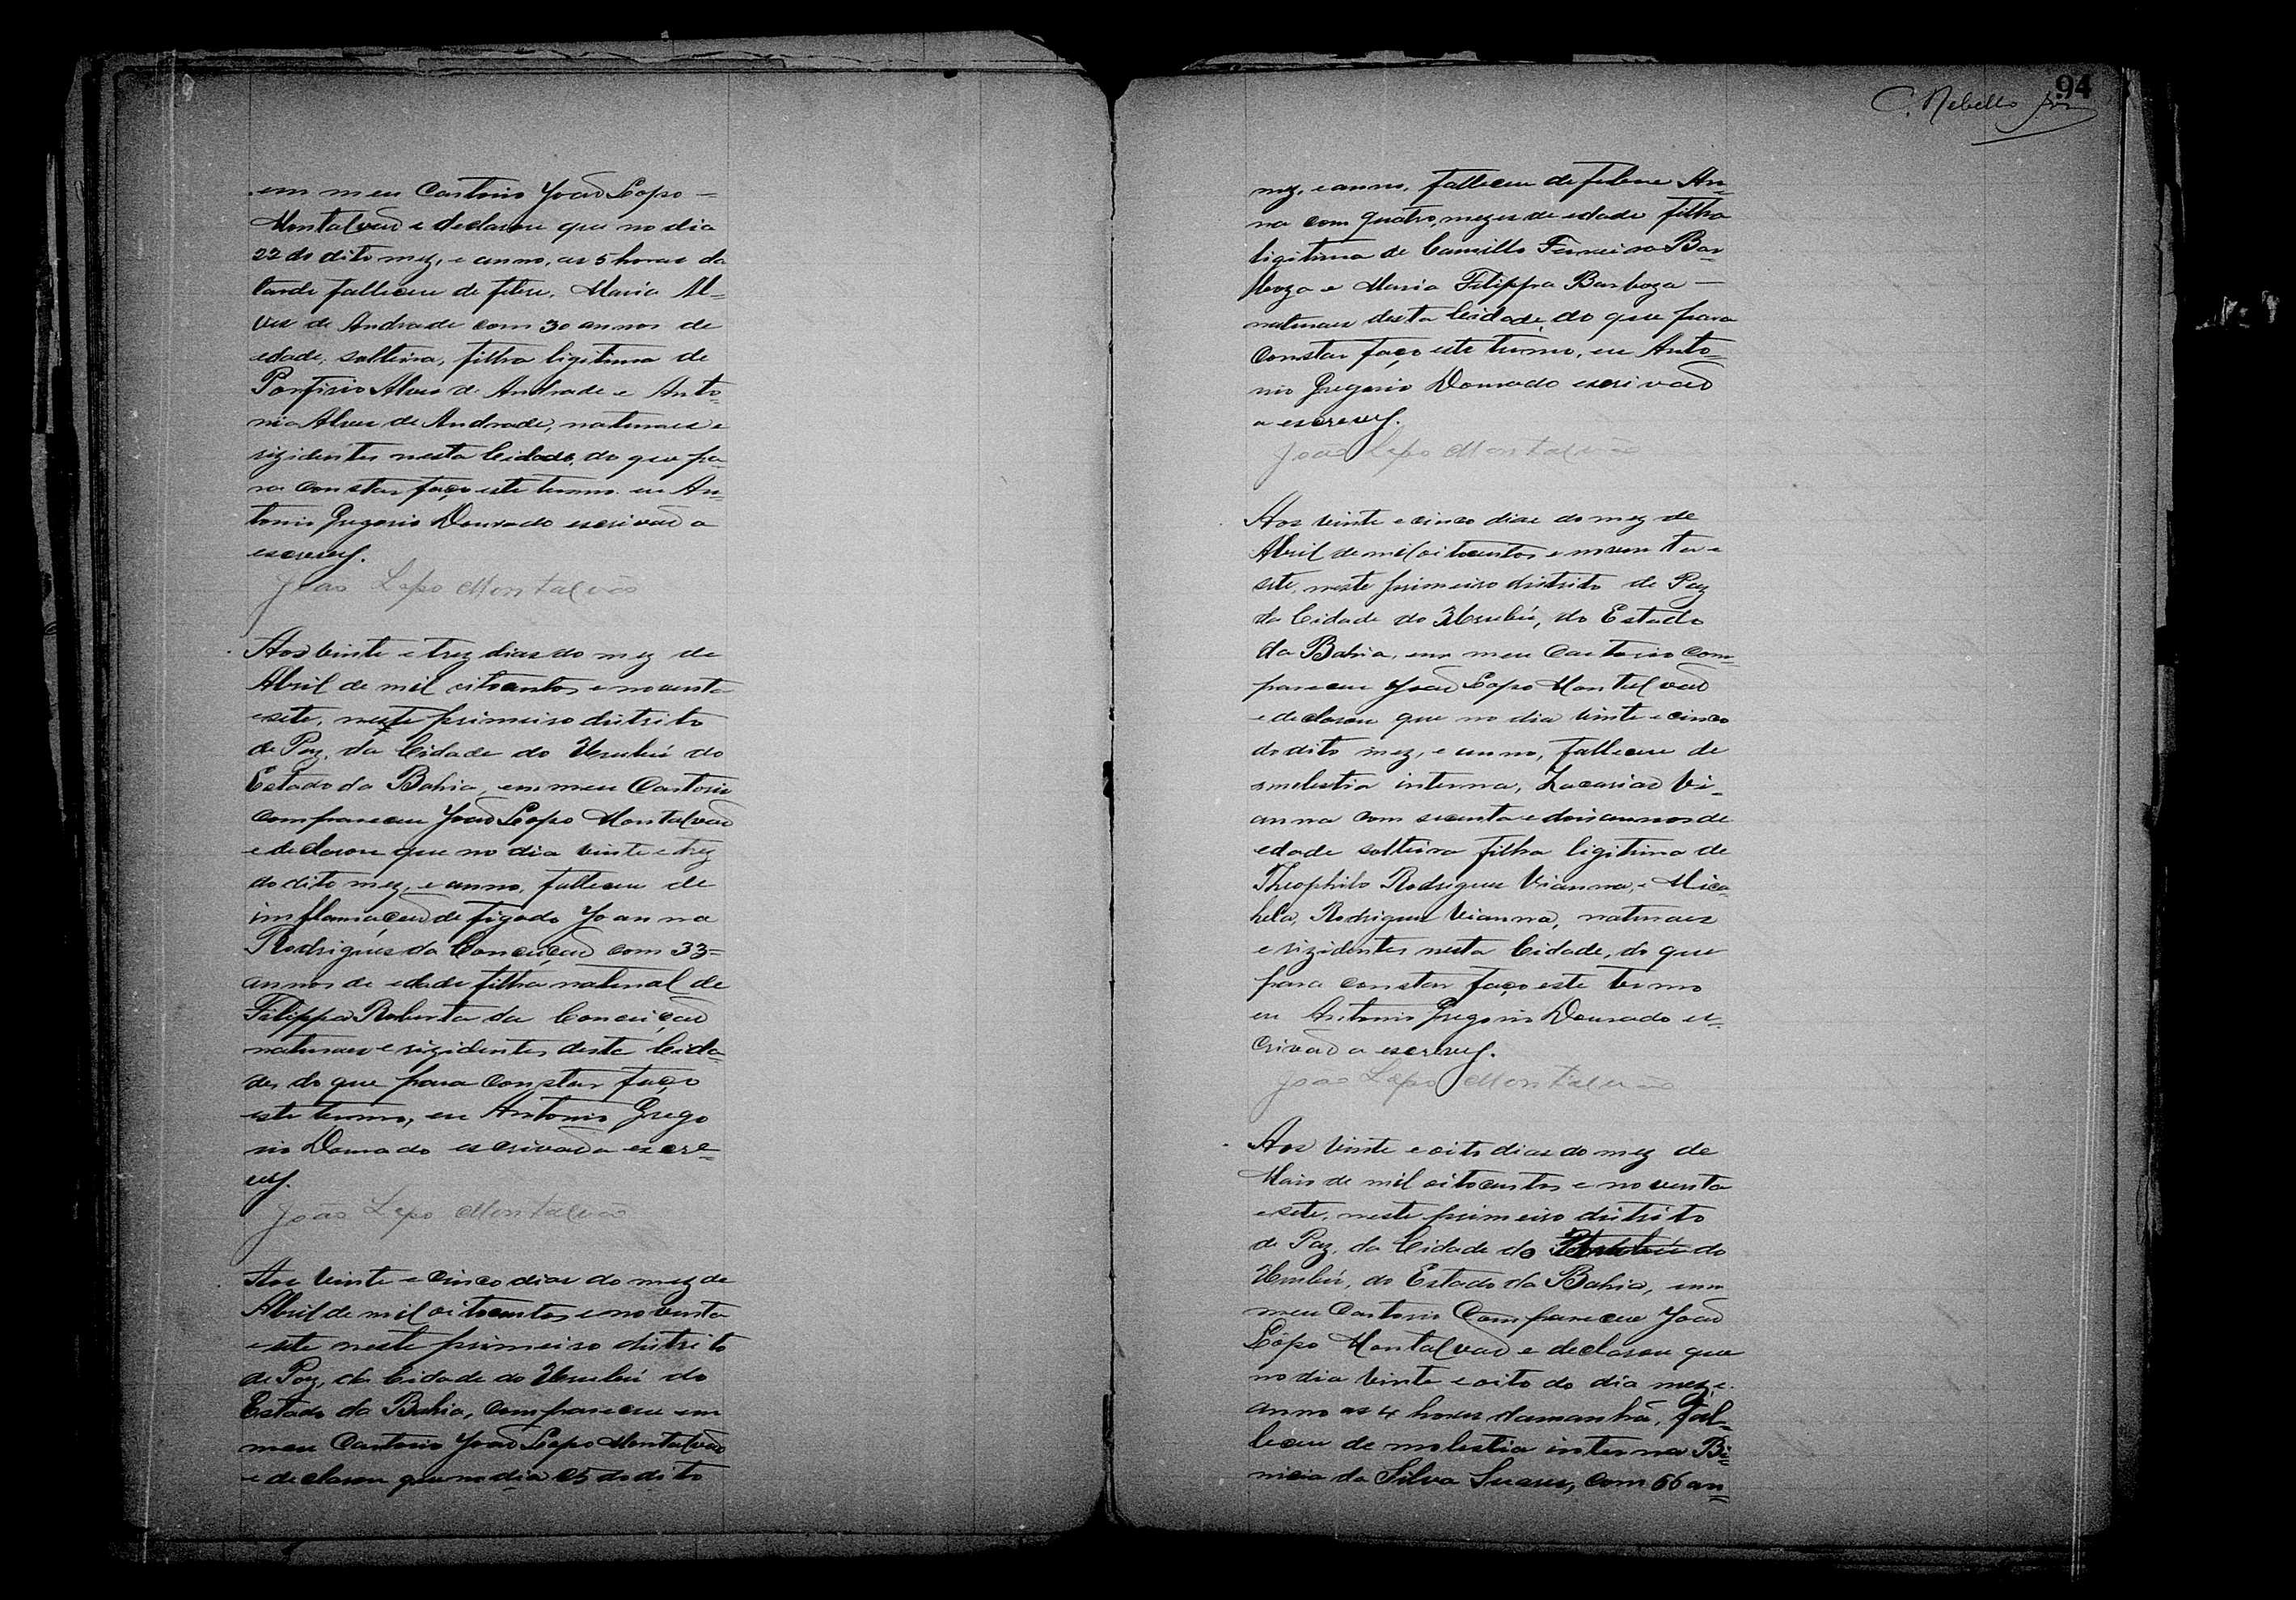 em meu Cartorio João Lopo —
Montalvão e declarou que no dia
22 do dito mez, e anno, as 5 horas da
tarde falleceu de febre, Maria Al=
ves de Andrade com 30 annos de
edade, solteira, filha ligitima de
Porfirio Alves de Andrade e Anto=
nia Alves de Andrade, naturaes e
rizidentes nesta Cidade, do que pa=
ra constar faço este termo. eu An=
tonio Gregorio Dourado escrivão a
escrevy.
João Lopo Montalvão
Aos vinte e trez dias do mez de
Abril de mil oitocentos e noventa
e sete, neste primeiro distrito
de Paz, da Cidade do Urubú do
Estado da Bahia, em meu Cartorio
compareceu João Lopo Montalvão
e declarou que no dia vinte e trez
do dito mez, e anno, falleceu de
imflamação de figado Joanna
Rodrigues da Conceição com 33=
annos de edade filha natural de
Filippa Roberta da Conceição
naturaes e rizidentes desta Cida=
de, do que para constar faço
este termo, eu Antonio Grego
rio Dourado escrivão a escre=
vy.
João Lopo Montalvão
Aos vinte e cinco dias do mez de
Abril de mil oitocentos e noventa
e sete neste primeiro distrito
de Paz, da Cidade do Urubú do
Estado da Bahia, compareceu em
meu Cartorio João Lopo Montalvão
e declarou que no dia 25 do dito
94
C. Rebello
mez, e anno, falleceu de febre An=
na com quatro mezes de edade filha
ligitima de Camillo Ferreira Bar=
boza e Maria Filippa Barboza —
naturaes desta Cidade, do que para
constar faço este termo, eu Anto=
nio Gregorio Dourado escrivão
a escrevy.
João Lopo Montalvão
Aos vinte e cinco dias do mez de
Abril de mil oitocentos e noventa e
sete, neste primeiro distrito de Paz
da Cidade do Urubú, do Estado
da Bahia, em meu Cartorio com=
pareceu João Lopo Montalvão
e declarou que no dia vinte e cinco
do dito mez, e anno, falleceu de
molestia interna, Zacarias Vi=
anna com secenta e dois annos de
edade solteira filha ligitima de
Theophilo Rodrigues Vianna, e Mica
hela, Rodrigues Vianna, naturaes
e rizidentes nesta Cidade, do que
para constar faço este termo
eu Antonio Gregorio Dourado es=
crivão a escrevy.
João Lopo Montalvão
Aos vinte e oito dias do mez de
Maio de mil oitocentos e noventa
e sete, neste primeiro distrito
de Paz, da Cidade do do
Urubú, do Estado da Bahia, em
meu Cartorio Compareceu João
Lopo Montalvão e declarou que
no dia vinte e oito do dia mez, e
anno as 4 horas da manhã, fal=
leceu de molestia interna Be=
nicia da Silva Suares, com 66 an=